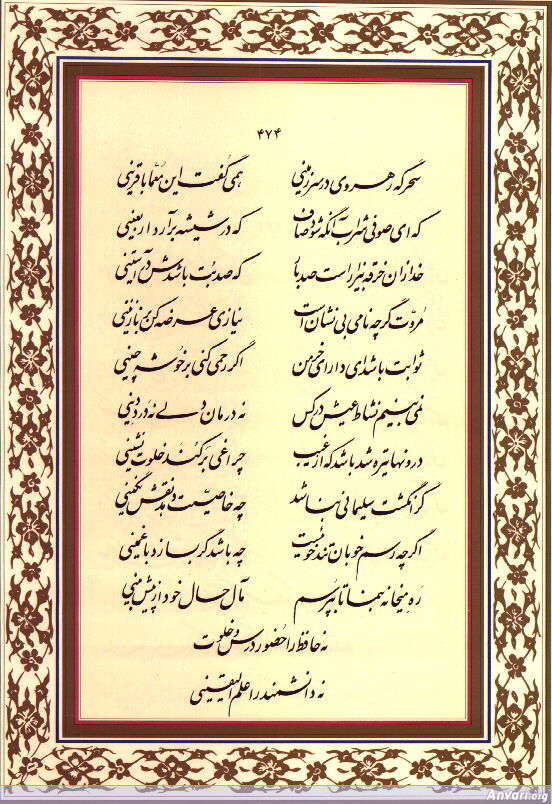 ۴۷۴
سحرگه رهروی در سرزمینی همی گفت این معما با قرینی
که ای صوفی شراب آنگه شود صاف که در شیشه برآرد اربعینی
خدا زان خرقه بیزار است صد بار که صد بت باشدش در آستینی
مروّت گرچه نامی بی نشان است نیازی عرضه کن بر نازنینی
ثوابت باشد ای دارای خرمن اگر رحمی کنی بر خوشه چینی
نمی بینم نشاط عیش در کس نه درمان دلی نه درد دینی
درونها تیره شد باشد که از غیب چراغی برکند خلوت نشینی
گر انگشت سلیمانی نباشد چه خاصیت دهد نقش نگینی
اگرچه رسم خوبان تندخوئیست چه باشد گر بسازد با غمینی
ره میخانه بنما تا بپرسم مآل حال خود از پیش بینی
نه حافظ را حضور درس و خلوت
نه دانشمند را علم الیقینی
Anvari.org